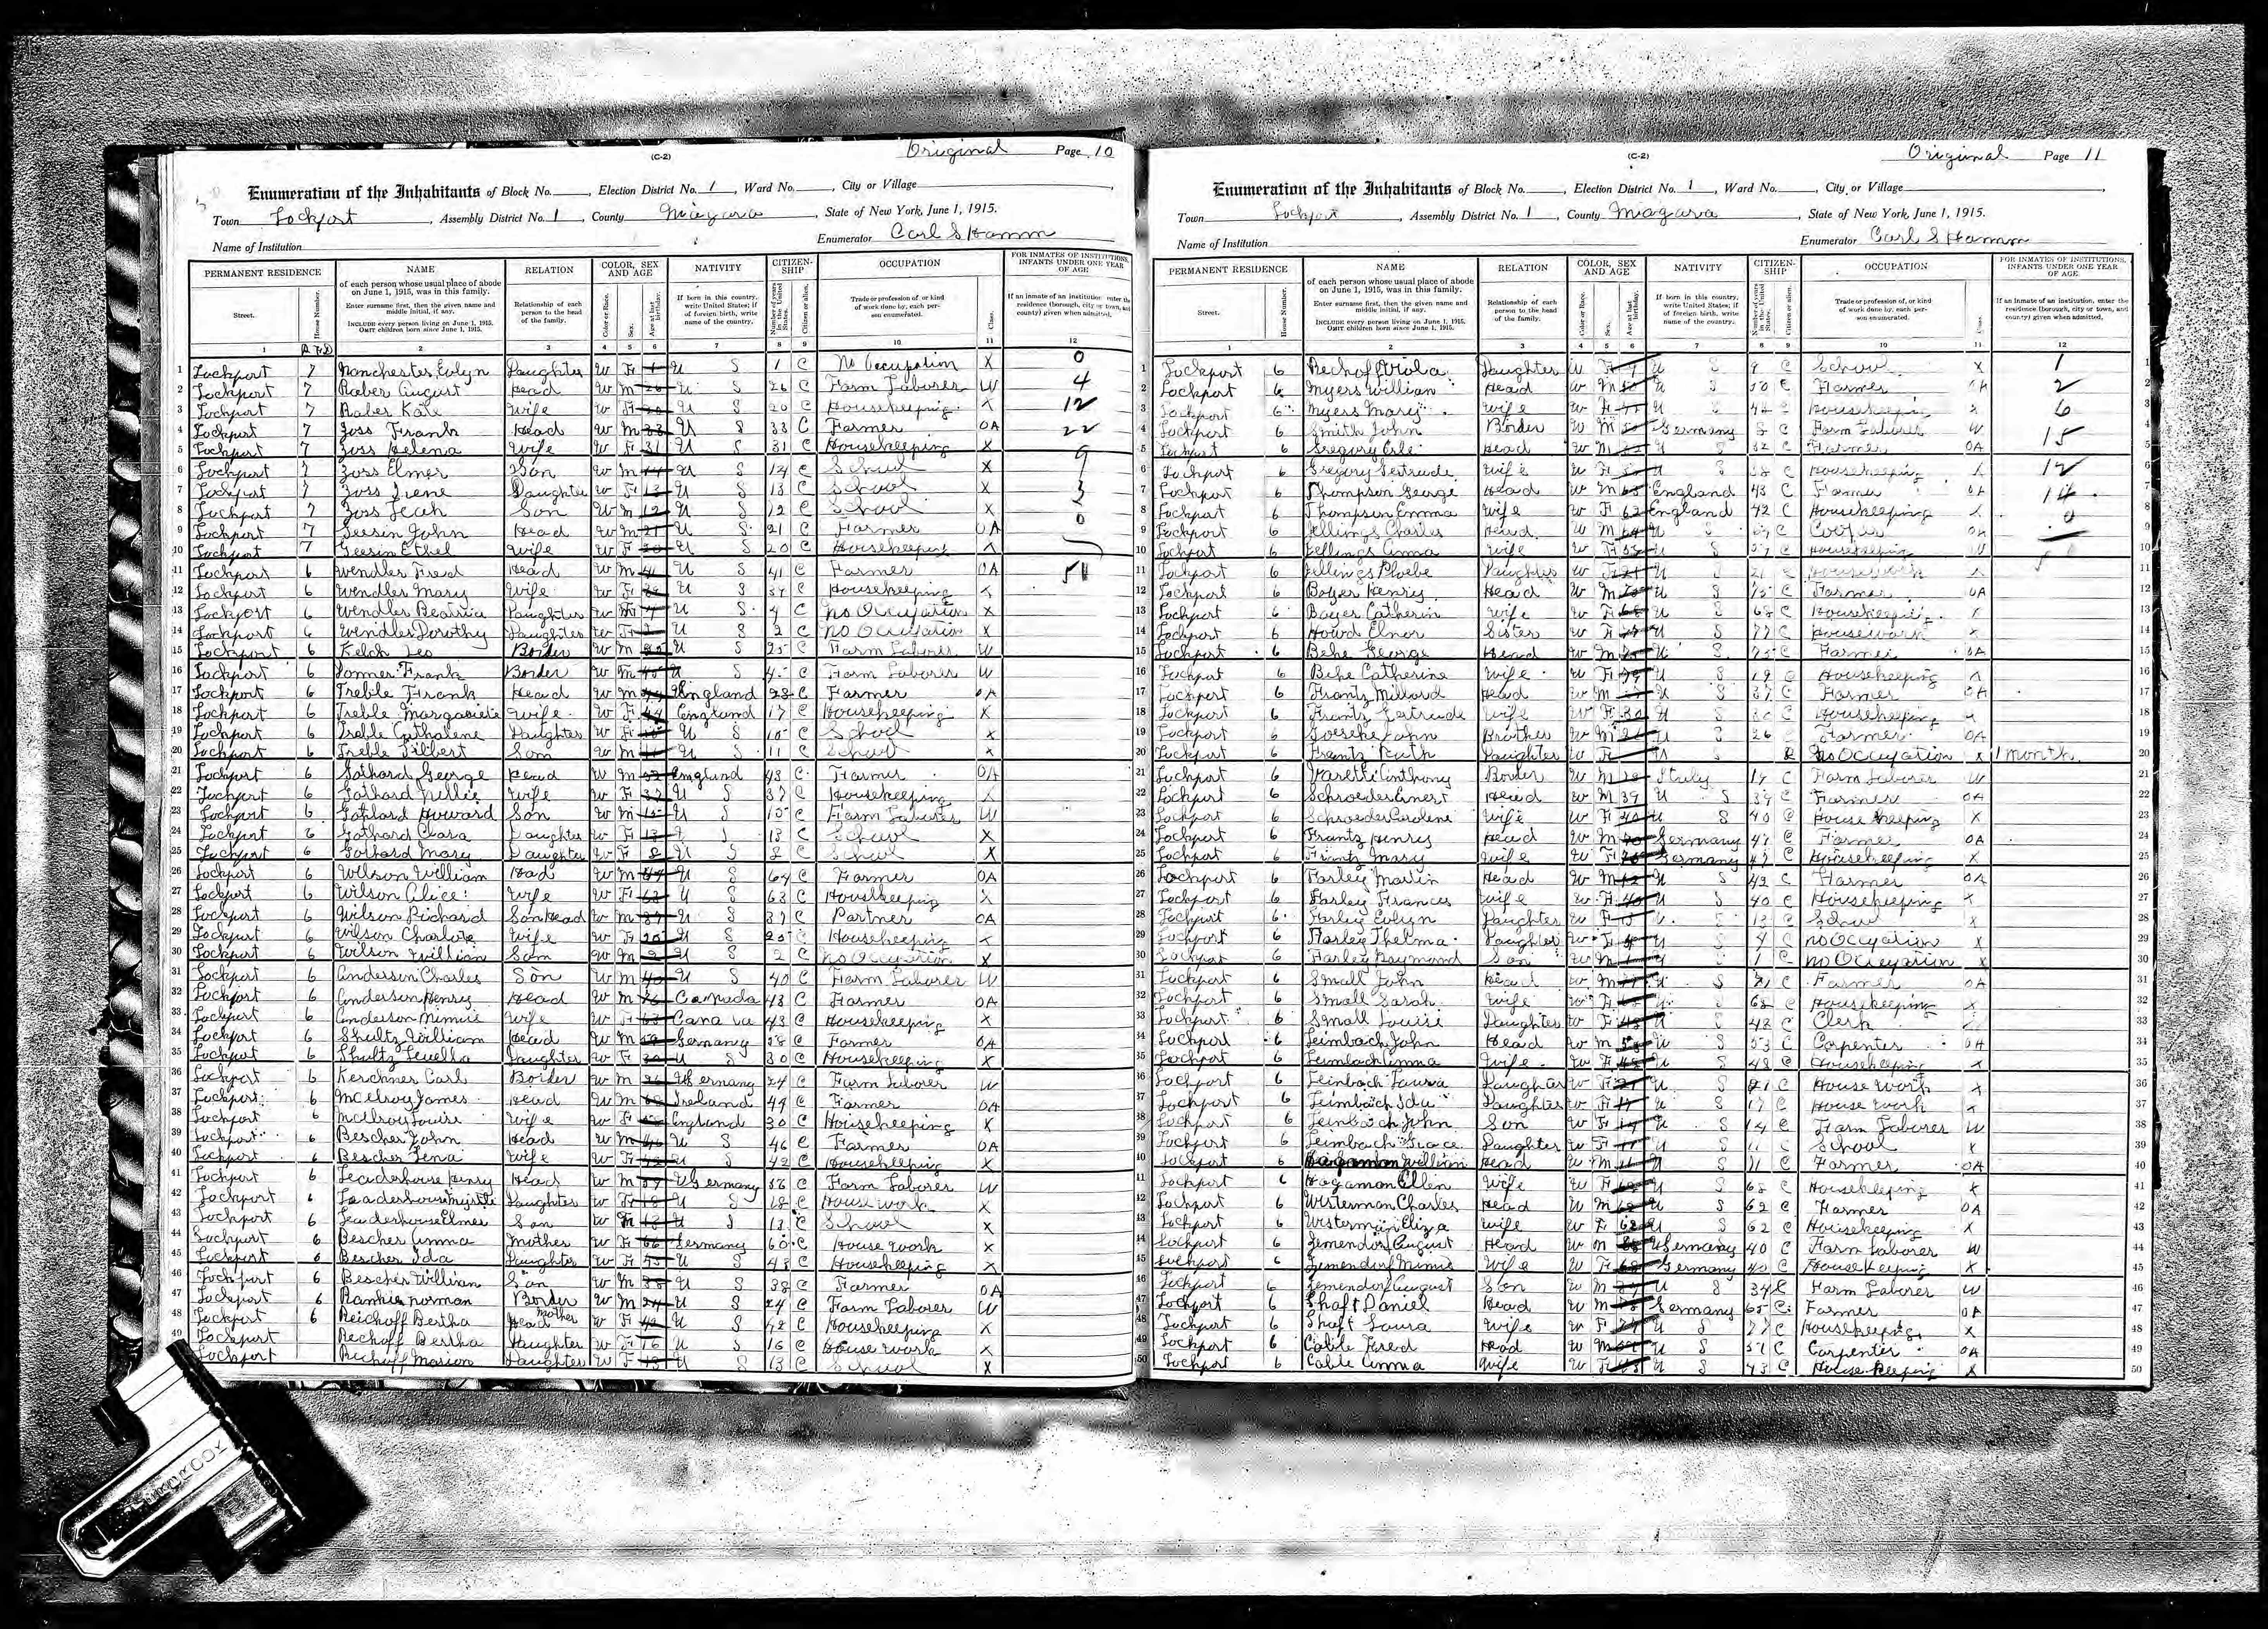 Original Page 10
(C-2)
Enumeration of the Inhabitants of Block No. , Election District No. 1 , Ward No. , City or Village ,
Town Lockport , Assembly District No. 1 , County Niagara , State of New York, June 1, 1915.
Name of Institution Enumerator Carl S Hamm
PERMANENT RESIDENCE NAME RELATION COLOR, SEX AND AGE NATIVITY CITIZENSHIP OCCUPATION FOR INMATES OF INSTITUTIONS, INFANTS UNDER ONE YEAR OF AGE
of each person whose usual place of abode on June 1, 1915, was in this family.
Enter surname first, then the given name and middle initial, if any.
INCLUDE every person living on June 1, 1915. OMIT children born since June 1, 1915.
Street. House Number. Relationship of each person to the head of the family. Color or Race. Sex. Age at last birthday. If born in this country, write United States; if of foreign birth, write name of the country. Number of years in the United States. Citizen or alien. Trade or profession of, or kind of work done by, each person enumerated. Class. If an inmate of an institution enter the residence (borough, city or town, and county) given when admitted.
1 2 3 4 5 6 7 8 9 10 11 12
1 Lockport 7 Manchester Evlyn Daughter W F 1 U S 1 C No Occupation X 0
2 Lockport 7 Raber August Head W M 26 U S 26 C Farm Laborer W 4
3 Lockport 7 Raber Kate Wife W F 20 U S 20 C Housekeeping X 12
4 Lockport 7 Zoss Frank Head W M 33 U S 33 C Farmer OA 22
5 Lockport 7 Zoss Helena Wife W F 31 U S 31 C Housekeeping X 9
6 Lockport 7 Zoss Elmer Son W M 14 U S 14 C School X
7 Lockport 7 Zoss Irene Daughter W F 13 U S 13 C School X 3
8 Lockport 7 Zoss Leah Son W M 12 U S 12 C School X
9 Lockport 7 John Head W M 21 U S 21 C Farmer OA 0
10 Lockport 7 Ethel Wife W F 20 U S 20 C Housekeeping X
11 Lockport 6 Wendler Fred Head W M 41 U S 41 C Farmer OA
12 Lockport 6 Wendler Mary Wife W F U S 37 C Housekeeping X
13 Lockport 6 Wendler Beatrice Daughter W F 4 U S 4 C No Occupation X
14 Lockport 6 Wendler Dorothy Daughter W F 2 U S 2 C No Occupation X
15 Lockport 6 Kelch Leo Border W M U S 25 C Farm Laborer W
16 Lockport 6 Frank Border W M 45 U S 45 C Farm Laborer W
17 Lockport 6 Treble Frank Head W M England 28 C Farmer OA
18 Lockport 6 Treble Margariete Wife W F 44 England 17 C Housekeeping X
19 Lockport 6 Treble Daughter W F 15 U S 15 C School X
20 Lockport 6 Treble Son W M 11 U S 11 C School X
21 Lockport 6 Gothard George Head W M 52 England 43 C Farmer OA
22 Lockport 6 Gothard Nellie Wife W F 37 U S 37 C Housekeeping X
23 Lockport 6 Gothard Howard Son W M 15 U S 15 C Farm Laborer W
24 Lockport 6 Gothard Clara Daughter W F 13 U S 13 C School X
25 Lockport 6 Gothard Mary Daughter W F 8 U S 8 C School X
26 Lockport 6 Wilson William Head W M 64 U S 64 C Farmer OA
27 Lockport 6 Wilson Alice Wife W F 63 U S 63 C Housekeeping X
28 Lockport 6 Wilson Richard Son Head W M 37 U S 37 C Partner OA
29 Lockport 6 Wilson Charlote Wife W F 25 U S 25 C Housekeeping X
30 Lockport 6 Wilson William Son W M 2 U S 2 C No Occupation X
31 Lockport 6 Anderson Charles Son W M 40 U S 40 C Farm Laborer W
32 Lockport 6 Anderson Henry Head W M 76 Canada 43 C Farmer OA
33 Lockport 6 Anderson Minnie Wife W F 63 Canada 43 C Housekeeping X
34 Lockport 6 Shultz William Head W M Germany C Farmer OA
35 Lockport 6 Shultz Luella Daughter W F 30 U S 30 C Housekeeping X
36 Lockport 6 Kerchner Carl Border W M 26 Germany 24 C Farm Laborer W
37 Lockport 6 McElroy James Head W M Ireland 49 C Farmer OA
38 Lockport 6 McElroy Louise Wife W F England 30 C Housekeeping X
39 Lockport 6 Bescher John Head W M 46 U S 46 C Farmer OA
40 Lockport 6 Bescher Lena Wife W F 42 U S 42 C Housekeeping X
41 Lockport 6 Leaderhouse Henry Head W M Germany C Farm Laborer W
42 Lockport 6 Leaderhouse Myrtle Daughter W F 18 U S 18 C House work X
43 Lockport 6 Leaderhouse Elmer Son W 13 U S 13 C School X
44 Lockport 6 Bescher Anna Mother W F 66 Germany 60 C House work X
45 Lockport 6 Bescher Ida Daughter W F 43 U S 43 C Housekeeping X
46 Lockport 6 Bescher William Son W M 38 U S 38 C Farmer OA
47 Lockport 6 Rankie Norman Border W M 24 U S 24 C Farm Laborer W
48 Lockport 6 Reichoff Bertha Head mother W F 42 U S 42 C Housekeeping X
49 Lockport Rechoff Bertha Daughter W F 16 U S 16 C House work X
Lockport Rechoff Marion Daughter W F 13 U S 13 C School X
Original Page 11
(C-2)
Enumeration of the Inhabitants of Block No. , Election District No. 1 , Ward No. , City or Village ,
Town Lockport , Assembly District No. 1 , County Niagara , State of New York, June 1, 1915.
Name of Institution Enumerator Carl S Hamm
PERMANENT RESIDENCE NAME RELATION COLOR, SEX AND AGE NATIVITY CITIZENSHIP OCCUPATION FOR INMATES OF INSTITUTIONS, INFANTS UNDER ONE YEAR OF AGE
of each person whose usual place of abode on June 1, 1915, was in this family.
Enter surname first, then the given name and middle initial, if any.
INCLUDE every person living on June 1, 1915. OMIT children born since June 1, 1915.
Street. House Number. Relationship of each person to the head of the family. Color or Race. Sex. Age at last birthday. If born in this country, write United States; if of foreign birth, write name of the country. Number of years in the United States. Citizen or alien. Trade or profession of, or kind of work done by, each person enumerated. Class. If an inmate of an institution, enter the residence (borough, city or town, and county) given when admitted.
1 2 3 4 5 6 7 8 9 10 11 12
1 Lockport 6 Rechoff Viola Daughter W F U S C School X 1
2 Lockport 6 Myers William Head W M 50 U S 50 C Farmer OA 2
3 Lockport 6 Myers Mary Wife W F U S C Housekeeping X 6
4 Lockport 6 Smith John Border W M Germany C Farm Laborer W 15
5 Lockport 6 Gregory Head W M U S C Farmer OA
6 Lockport 6 Gregory Gertrude Wife W F U S 38 C Housekeeping X 12
7 Lockport 6 Thompson George Head W M 65 England 43 C Farmer OA 14
8 Lockport 6 Thompson Emma Wife W F 62 England 42 C Housekeeping X 0
9 Lockport 6 Jellings Charles Head W M U S C Cooper OA
10 Lockport 6 Jellings Anna Wife W F U S 57 C Housekeeping
11 Lockport 6 Jellings Phoebe Daughter W F 21 U S 21 C Housework X
12 Lockport 6 Boyer Henry Head W M U S C Farmer OA
13 Lockport 6 Boyer Catherin Wife W F 68 U S 68 C Housekeeping X
14 Lockport 6 Howd Elnor Sister W F 77 U S 77 C Housework X
15 Lockport 6 Behe George Head W M U S C Farmer OA
16 Lockport 6 Behe Catherine Wife W F U S C Housekeeping X
17 Lockport 6 Frantz Millard Head W M U S 37 C Farmer OA
18 Lockport 6 Frantz Gertrude Wife W F 30 U S 30 C Housekeeping X
19 Lockport 6 John Brother W M 26 U S 26 C Farmer OA
20 Lockport 6 Frantz Ruth Daughter W F U S C No Occupation X 1 month
21 Lockport 6 Varette Anthony Border W M Italy C Farm Laborer W
22 Lockport 6 Schroeder Ernert Head W M 39 U S 39 C Farmer OA
23 Lockport 6 Schroeder Caroline Wife W F 40 U S 40 C House keeping X
24 Lockport 6 Frantz Henry Head W M 70 Germany 47 C Farmer OA
25 Lockport 6 Frantz Mary Wife W F Germany 47 C Housekeeping X
26 Lockport 6 Farley Martin Head W M 42 U S 42 C Farmer OA
27 Lockport 6 Farley Frances Wife W F 40 U S 40 C Housekeeping X
28 Lockport 6 Farley Evlyn Daughter W F 13 U S 13 C School X
29 Lockport 6 Farley Thelma Daughter W F 4 U S 4 C No Occupation X
30 Lockport 6 Farley Raymond Son W M 1 U S 1 C No Occupation X
31 Lockport 6 Small John Head W M 71 U S 71 C Farmer OA
32 Lockport 6 Small Sarah Wife W F 68 U S 68 C Housekeeping X
33 Lockport 6 Small Louise Daughter W F 48 U S 48 C Clerk
34 Lockport 6 Leimbach John Head W M 53 U S 53 C Carpenter OA
35 Lockport 6 Leimbach Emma Wife W F 48 U S 48 C Housekeeping X
36 Lockport 6 Leinbach Laura Daughter W F 21 U S 21 C House work X
37 Lockport 6 Leimbach Ida Daughter W F 17 U S 17 C House work X
38 Lockport 6 Leinbach John Son W 14 U S 14 C Farm Laborer W
39 Lockport 6 Leimbach Grace Daughter W F 11 U S 11 C School X
40 Lockport 6 Hagaman William Head W M 71 U S 71 C Farmer OA
41 Lockport 6 Hagamon Ellen Wife W F 68 U S 68 C Housekeeping X
42 Lockport 6 Westerman Charles Head W M 62 U S 62 C Farmer OA
43 Lockport 6 Westerman Eliza Wife W F 62 U S 62 C Housekeeping X
44 Lockport 6 Zemendorf August Head W M Germany 40 C Farm Laborer W
45 Lockport 6 Zemendorf Minnie Wife W F 68 Germany 40 C Housekeeping X
46 Lockport 6 Zemendorf August Son W M 34 U S 34 C Farm Laborer W
47 Lockport 6 Shaft Daniel Head W M Germany 65 C Farmer OA
48 Lockport 6 Shaft Laura Wife W F 77 U S 77 C Housekeeping X
49 Lockport 6 Coble Fred Head W M 57 U S 57 C Carpenter OA
50 Lockport 6 Coble Emma Wife W F 43 U S 43 C Housekeeping X